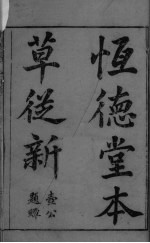 恆德堂本
草從新
壺公
題㰖